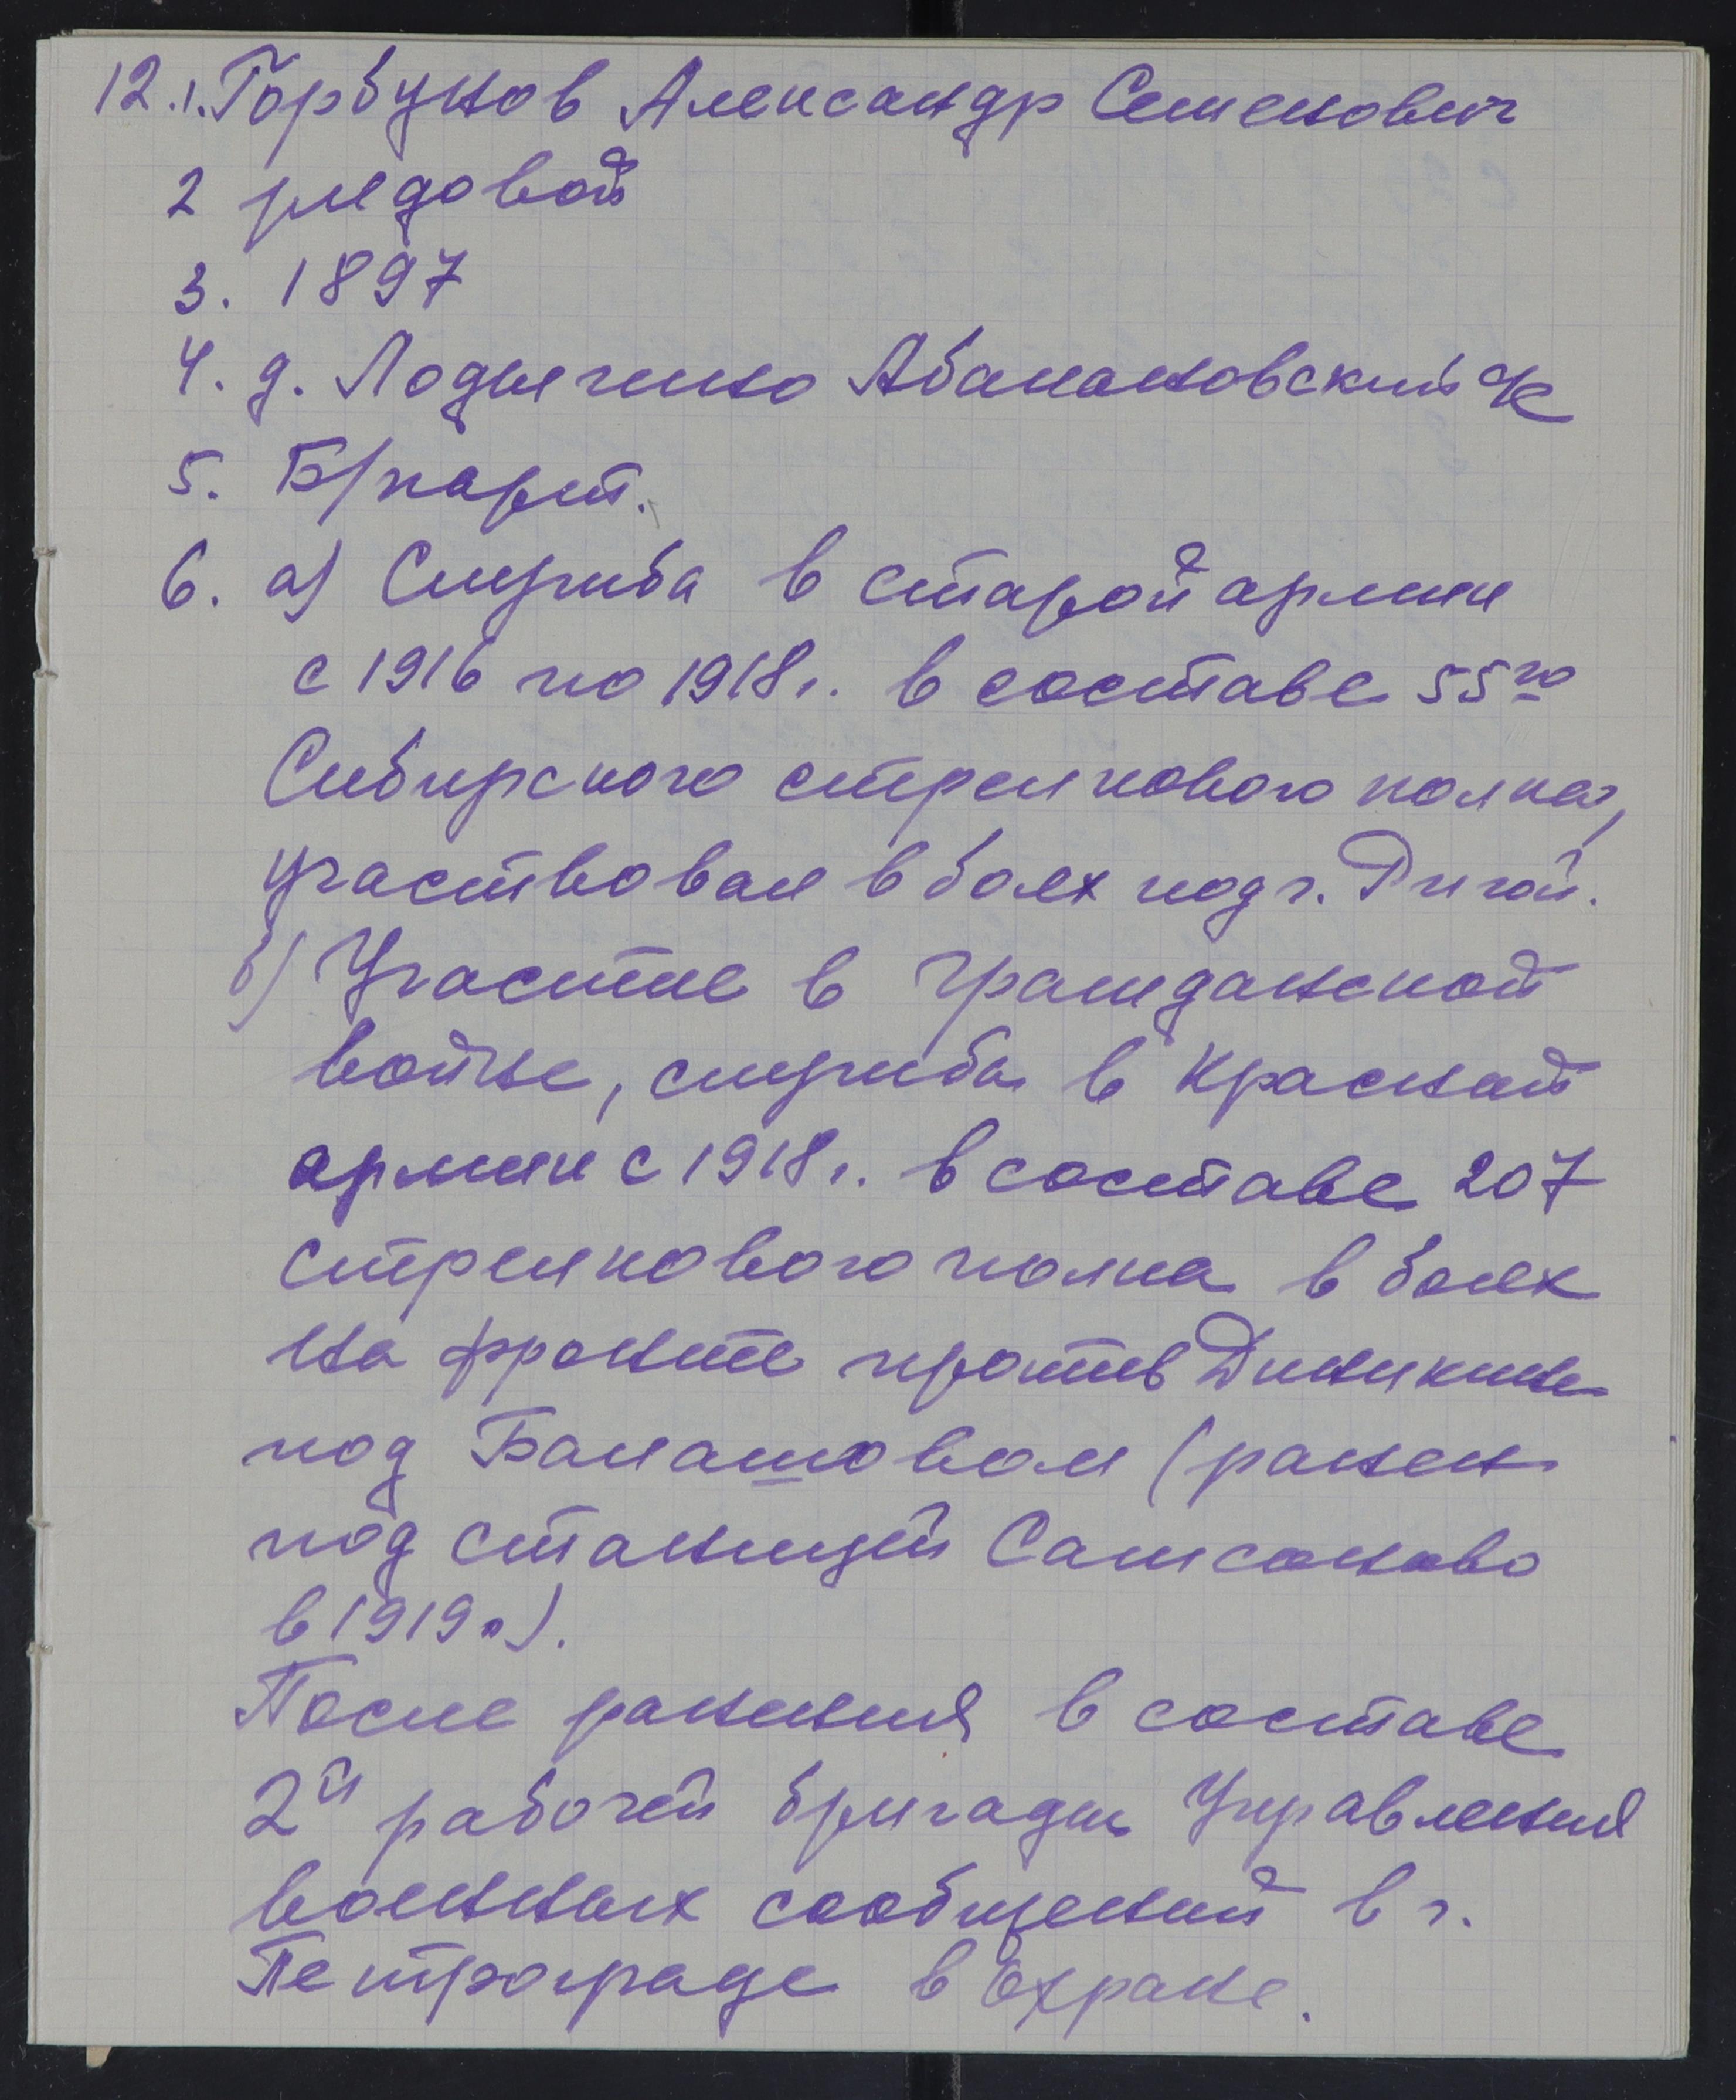 12.1. Горбунов Александр Семенович
2 рядовой
3. 1897
4. д. Лодыгино Абакановский с/с
5. Б/парт.
6. а) Служба в старой армии
с 1916 по 1918г. в составе 55го
Сибирского стрелкового полка,
участвовал в боях под г. Ригой.
б) Участие в гражданской
войне, служба в Красной
армии с 1918г. в составе 207
стрелкового полка в боях
на фронте против Деникина
под Балашовом (ранен
под станцией Самсоново
в 1919г.).
После ранения в составе
2й рабочей бригады Управления
военных сообщений в г.
Петрограде в Охране.